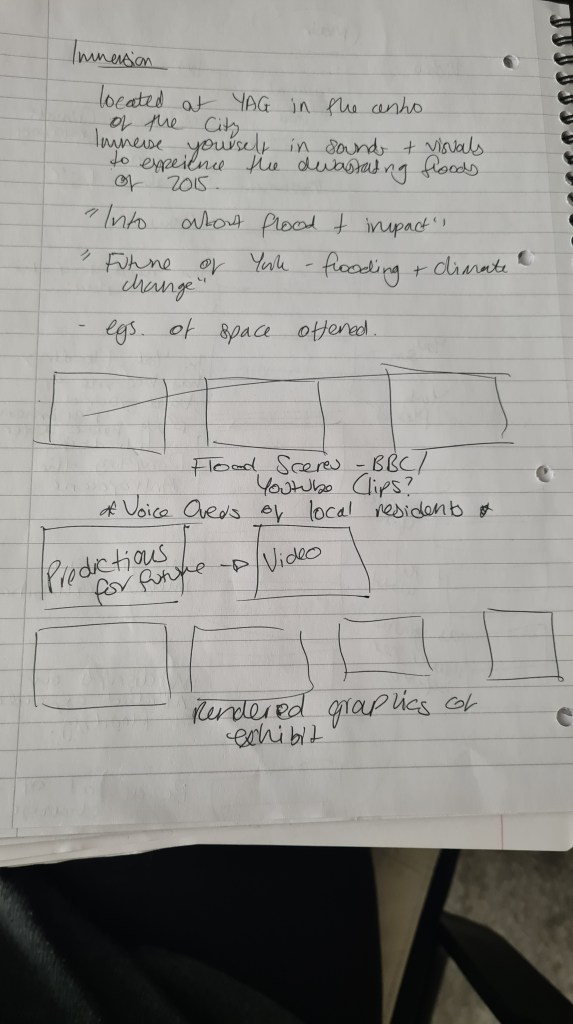 Immersion
located at YAG in the centre
of the City
Immerse yourself in sounds + visuals
to experience the devastating floods
of 2015.
"Info about flood + impact"
"Future of York - flooding + climate
change"
- egs. of space offered.
Flood Scenes - BBC/
Youtube Clips?
* Voice Overs of local residents *
Predictions
for future → Video
Rendered graphics of
exhibit